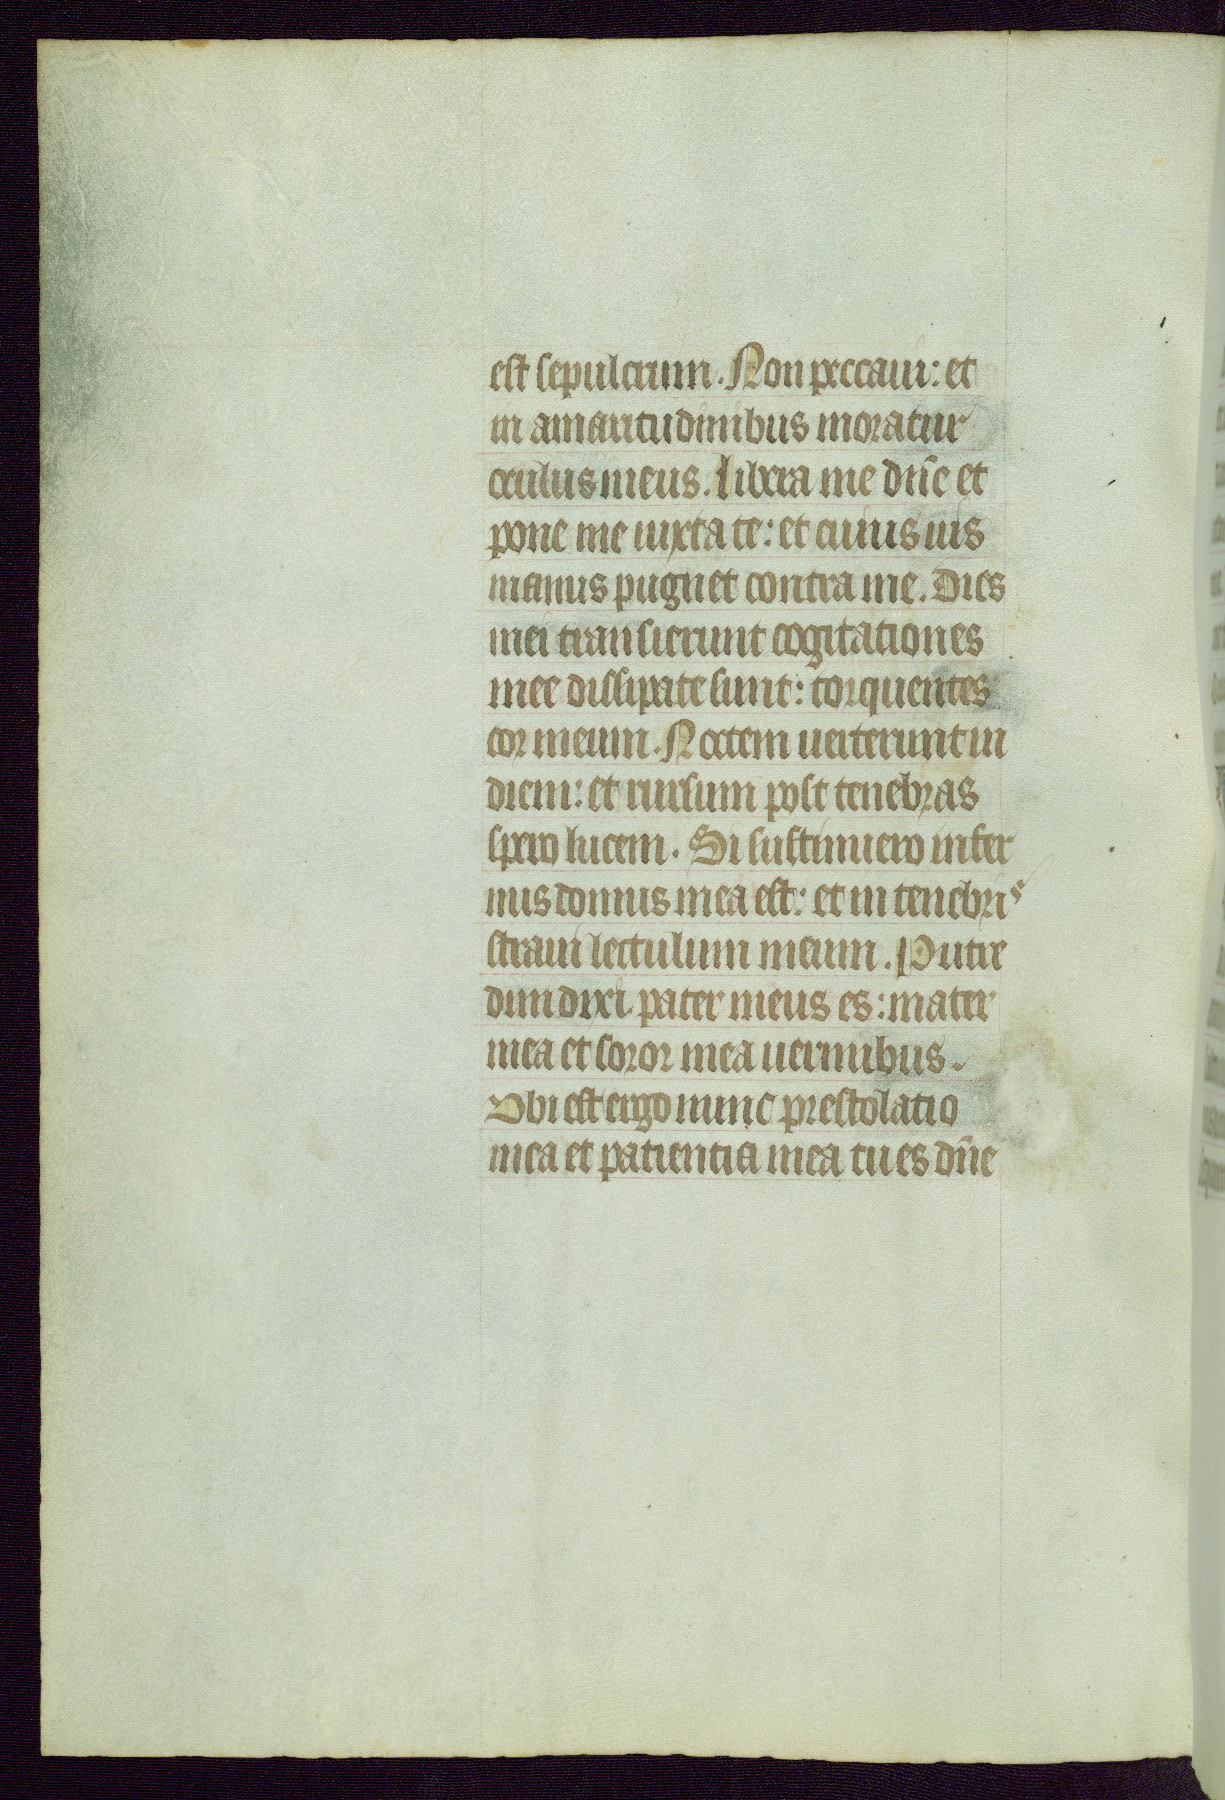 est sepulcrum. Non peccaui: et
in amaritudinibus moratur
oculus meus. Libera me dñe et
pone me iuxta te: et cuiusuis
manus pugnet contra me. Dies
mei transierunt cogitationes
mee dissipate sunt: torquentes
cor meum. Noctem uerterunt in
diem: et rursum post tenebras
spero lucem. Si sustinuero infer
nus domus mea est: et in tenebris
straui lectulum meum. Putre
dini dixi pater meus es: mater
mea et soror mea uermibus.
Vbi est ergo nunc prestolatio
mea et patientia mea tu es dñe